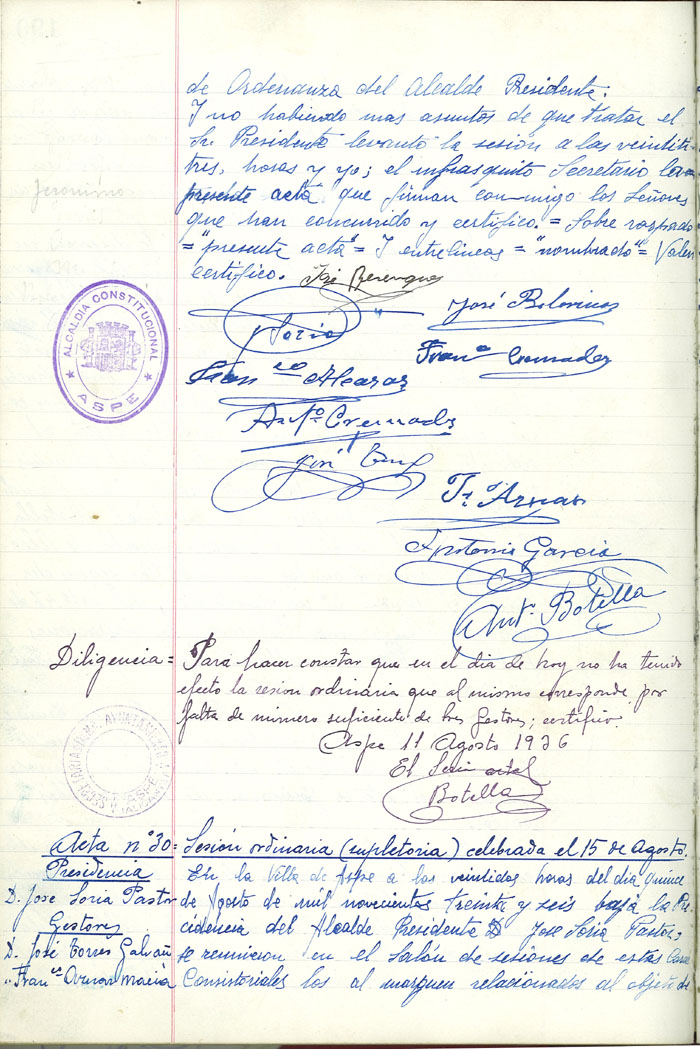 de Ordenanza del Alcalde Presidente;
Y no habiendo mas asuntos de que tratar el
Sr. Presidente levantó la sesión a las veintiti-
tres, horas y yo; el infrasquito Secretario la
presente acta, que firman con-migo los Señores
que han concurrido y certifico. = Sobre raspado
= "presente acta" = Y entrelineas = "nombrado" = Valen
certifico. José Berenguer
J Soria José Bolorinos
Franco Alcaraz Franco Cremades
Anto Cremades
José
Fr. Aznar
Antonio Garcia
Ant. Botella
ALCALDIA CONSTITUCIONAL
ASPE
Jeronimo
Diligencia = Para hacer constar que en el dia de hoy no ha tenido
efecto la sesion ordinaria que al mismo corresponde por
falta de número suficiente de Gestores; certifico.
Aspe 11 Agosto 1936
El
Botella
ASPE
Acta nº 30 = Sesión ordinaria (supletoria) celebrada el 15 de Agosto.
Presidencia
D. Jose Soria Pastor
Gestores
D. José Torres Galvañ
" Franco Macià
En la Villa de Aspe a los veintidos horas del dia quince
de Agosto de mil novecientos treinta y seis bajo la Pre
cidencia del Alcalde Presidente D Jose Soria Pastor,
se reunieron en el Salón de sesiones de estas Casas
Consistoriales los al marguen relacionados al objeto de